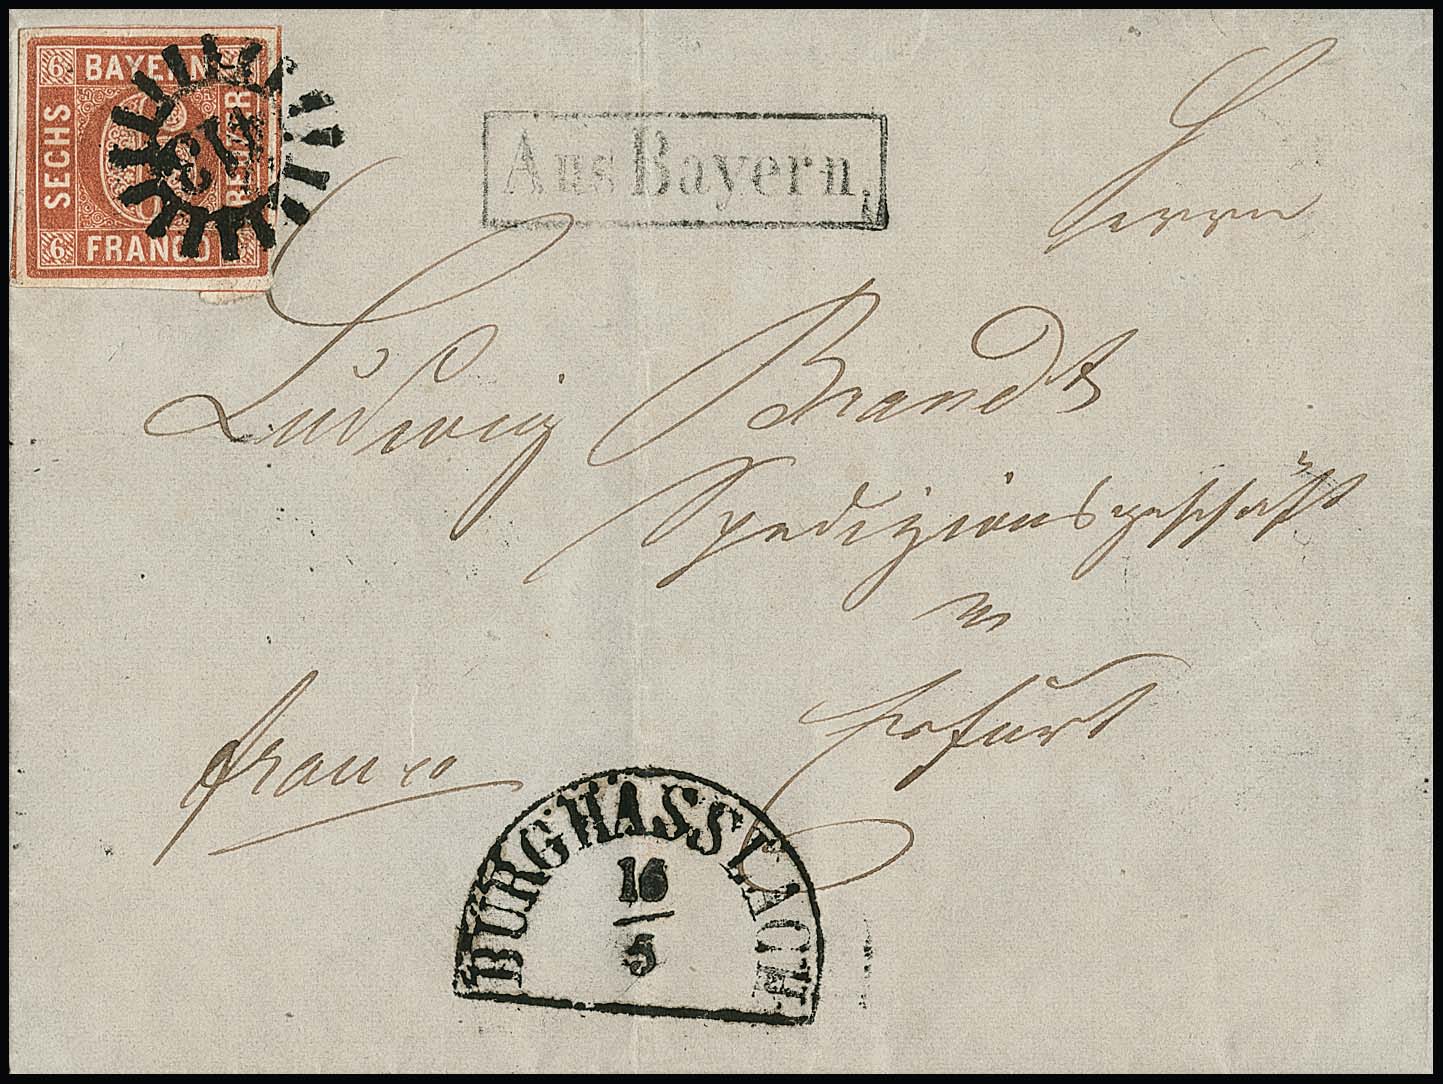 6 BAYERN
SECHS
KREUZER
6 FRANCO
113
Aus Bayern.
Herrn
Ludwig Brandt
Spedizionsgeschäft
in
Erfurt
franco
BURGHASSLACH
16
5